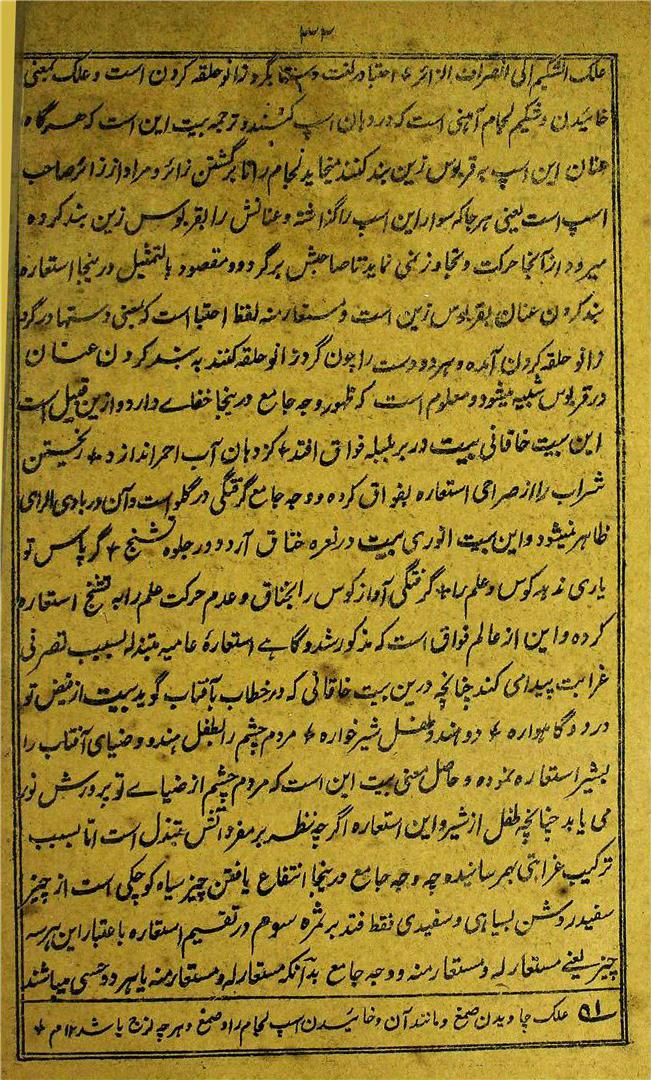 ۳۲
علک الشکیم الی انصراف الزائر ٭ احتبا در لغت دست با گرد زانو حلقه کردن است و علک بمعنی
خائیدن و شکیم لجام آهنی است که در دهان اسپ کشند و ترجمه بیت این است که هر گاه
عنان این اسپ بقربوس زین بند کنند میخاید لجام را تا برگشتن زائر و مراد از زائر صاحب
اسپ است یعنی هر جا که سوار این اسپ را گذاشته و عنانش را بقربوس زین بند کرده
میرود از آنجا حرکت و تجاوز نمی نماید تا صاحبش برگردد و مقصود بالتمثیل درینجا استعاره
بند کردن عنان بقربوس زین است و مستعار منه لفظ احتبا است که بمعنی دستها در گرد
زانو حلقه کردن آمده و هر دو دست را چون گرد زانو حلقه کنند به بند کردن عنان
در قربوس شبیه میشود و معلوم است که ظهور وجه جامع درینجا خفاے دارد و ازین قبیل است
این بیت خاقانی بیت در بر بلبله فواق افتد ٭ کز دهان آب احمر اندازد ٭ ریختن
شراب را از صراحی استعاره بفواق کرده و وجه جامع گرفتگی در گلو است و آن در بادی الرای
ظاهر نمیشود و این بیت انوری بیت در نعره خناق آرد و در جلوه تشنج ٭ گر پاس تو
یاری ندهد کوس و علم را ٭ گرفتگی آواز کوس را بخناق و عدم حرکت علم را به تشنج استعاره
کرده و این از عالم فواق است که مذکور شد و گاهے استعارهٔ عامیه مبتذله بسبب تصرفی
غرابت پیدا می کند چنانچه درین بیت خاقانی که در خطاب بآفتاب گوید بیت از فیض تو
در دو گاهواره ٭ دو هندو طفل شیر خواره ٭ مردم چشم را بطفل هندو و ضیای آفتاب را
بشیر استعاره نموده و حاصل معنی بیت این است که مردم چشم از ضیاے تو پرورش نور
می یابد چنانچه طفل از شیر و این استعاره اگر چه نظر بر مفرداتش مبتذل است امّا بسبب
ترکیب غرابتی بهم رسانیده چه وجه جامع درینجا انتفاع یافتن چیز سیاه کوچکی است از چیز
سفید روشن بسیاهی و سفیدی فقط فتدبر ثمره سوم در تقسیم استعاره باعتبار این هر سه
چیز یعنے مستعار له و مستعار منه و وجه جامع بدآنکه مستعار له و مستعار منه یا هر دو حسی میباشند
۵۱ علک جاویدن صمغ و مانند آن و خائیدن اسپ لجام را و صمغ و هر چه لزج باشد ۱۲ م ٭